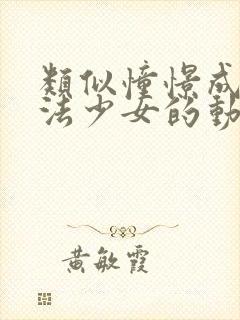 類似憧憬成
法少女的動
黃敏霞